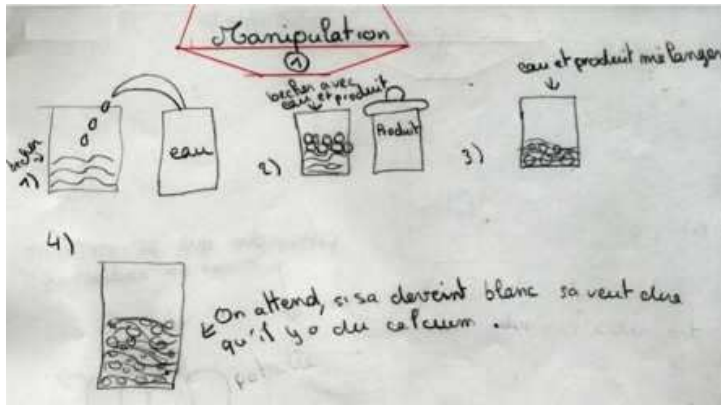 Manipulation
1
becher
1)
eau
becher avec
eau et produit
2)
Produit
eau et produit mélanger
3)
4)
On attend, si sa devient blanc sa veut dire
qu'il y a du calcium.